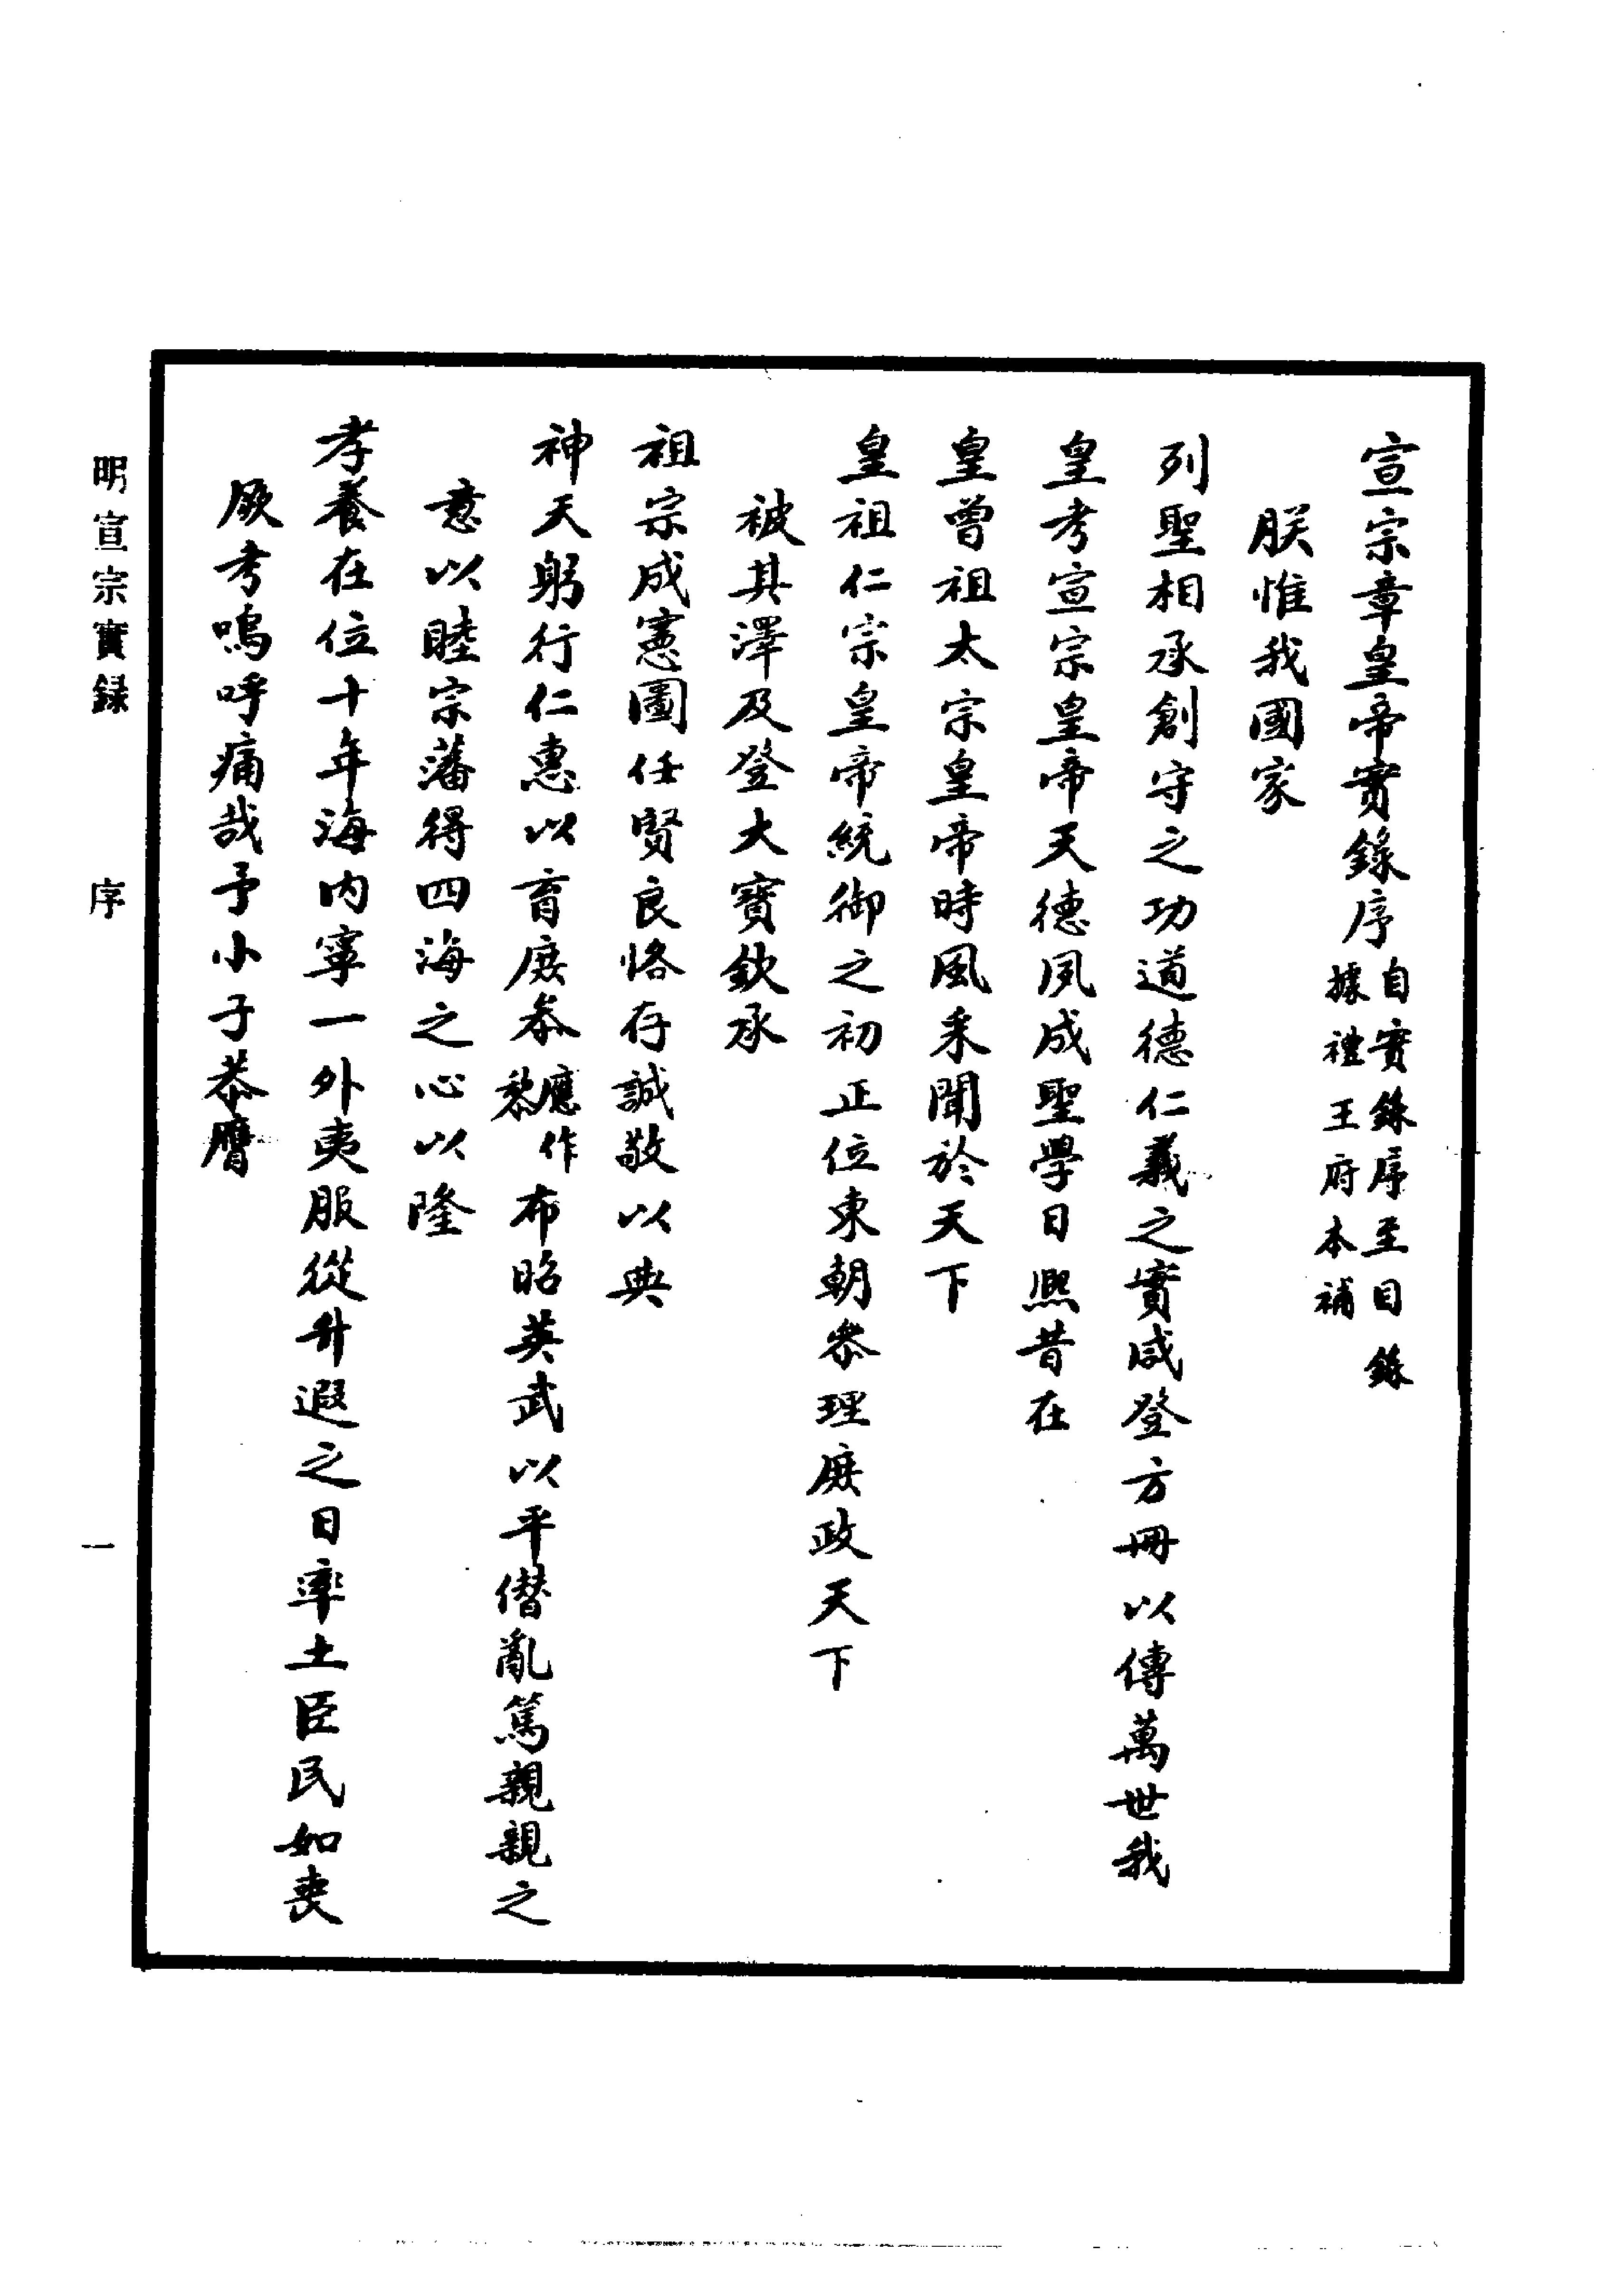 宣宗章皇帝實錄序自實錄序至目錄據禮王府本補
朕惟我國家
列聖相承創守之功道德仁義之實咸登方冊以傳萬世我
皇考宣宗皇帝天德夙成聖學日熙昔在
皇曾祖太宗皇帝時風采聞於天下
皇祖仁宗皇帝統御之初正位東朝叅理庶政天下
被其澤及登大寶欽承
祖宗成憲圖任賢良恪存誠敬以典
神天躬行仁惠以育庶叅應作黎布昭英武以平僭亂篤親親之
意以睦宗藩得四海之心以隆
孝養在位十年海內寧一外夷服從升遐之日率土臣民如喪
厥考嗚呼痛哉予小子恭膺
明宣宗實録 序 一